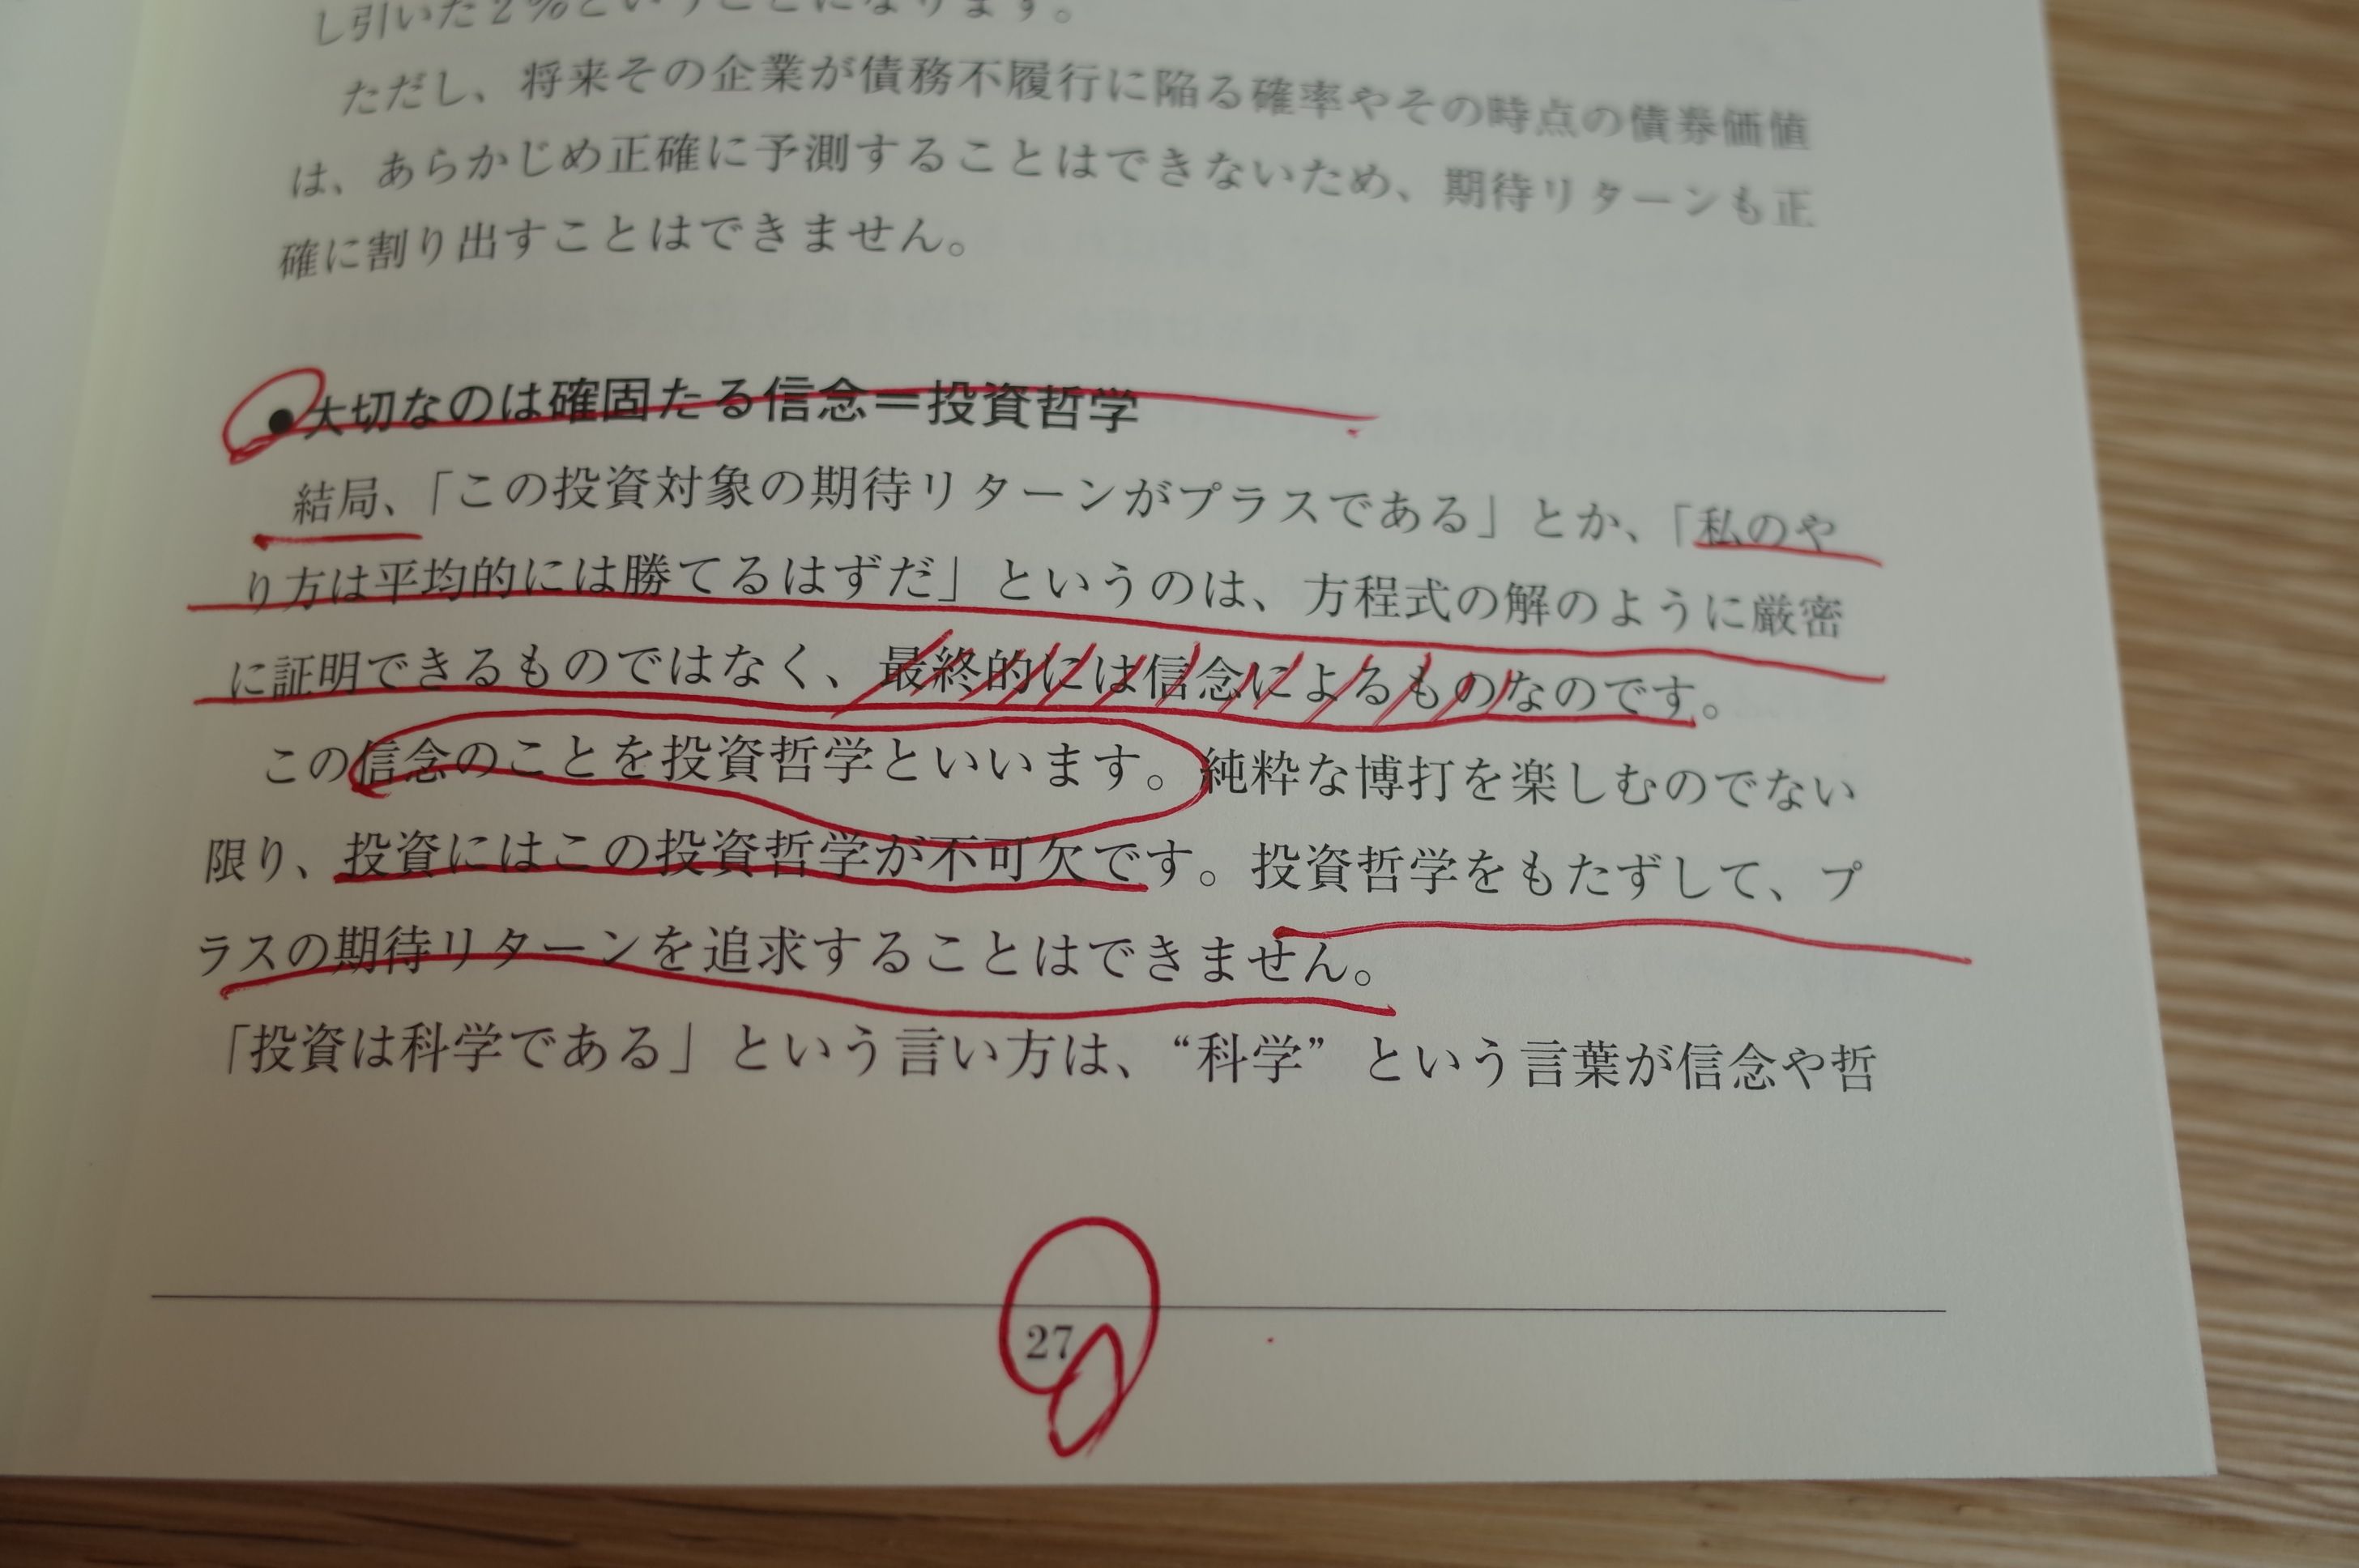 し引いた2%ということになります。
ただし、将来その企業が債務不履行に陥る確率やその時点の債券価値
は、あらかじめ正確に予測することはできないため、期待リターンも正
確に割り出すことはできません。
●大切なのは確固たる信念＝投資哲学
結局、「この投資対象の期待リターンがプラスである」とか、「私のや
り方は平均的には勝てるはずだ」というのは、方程式の解のように厳密
に証明できるものではなく、最終的には信念によるものなのです。
この信念のことを投資哲学といいます。純粋な博打を楽しむのでない
限り、投資にはこの投資哲学が不可欠です。投資哲学をもたずして、プ
ラスの期待リターンを追求することはできません。
「投資は科学である」という言い方は、“科学”という言葉が信念や哲
27